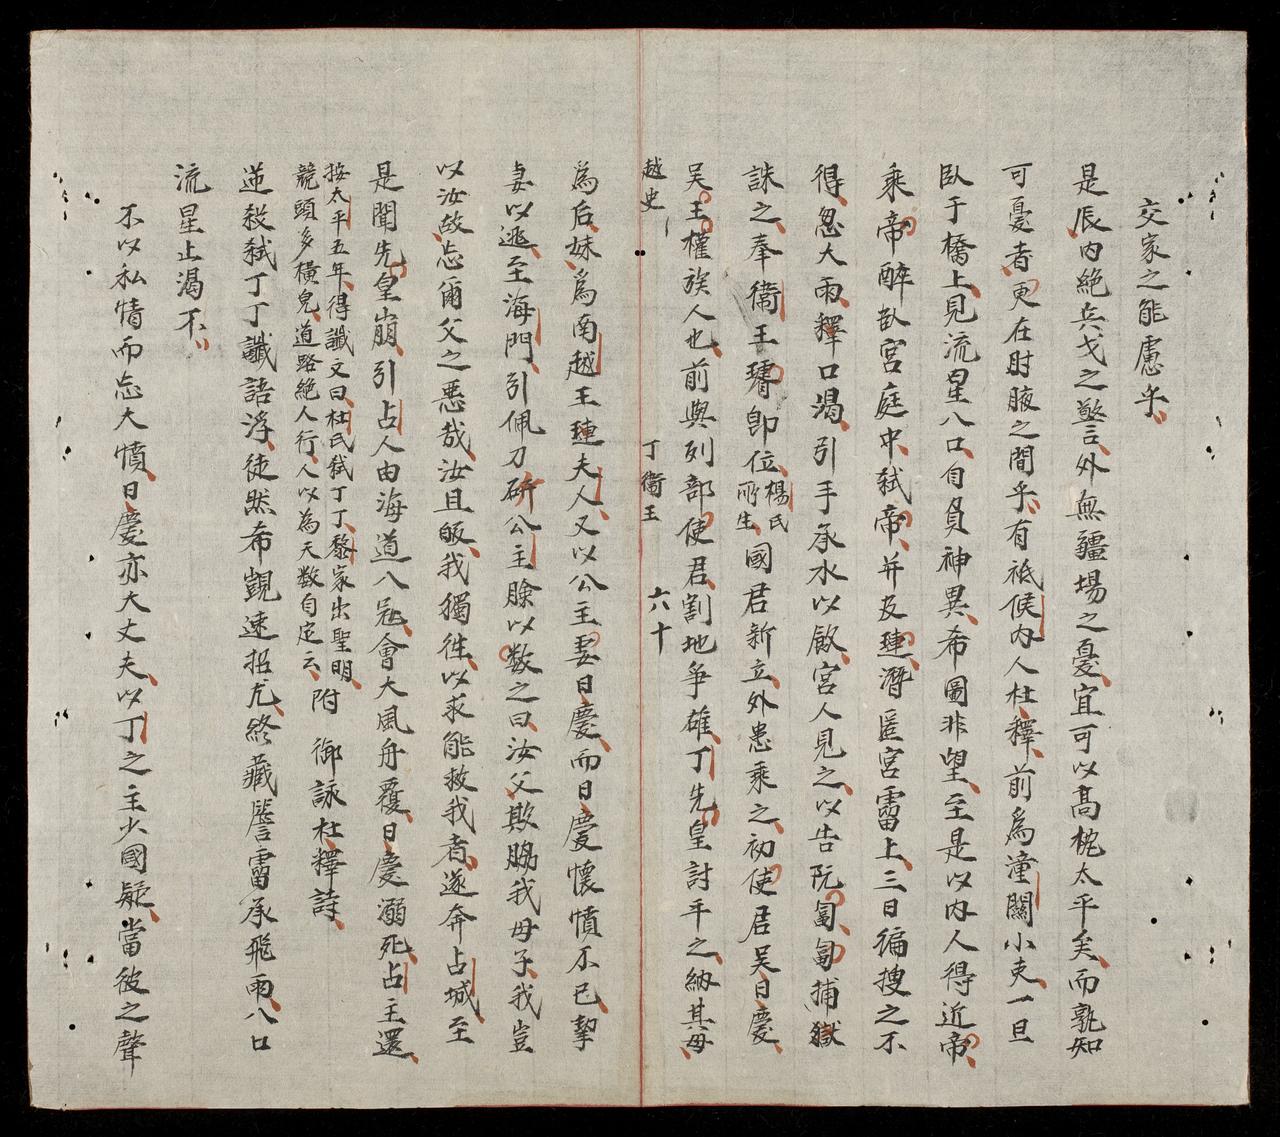 交家之能慮乎
是辰内絶兵戈之警外無疆場之憂宜可以高枕太平矣而孰知
可憂者更在肘腋之間乎有祗候内人杜釋前為潼關小吏一旦
臥于橋上見流星入口自負神異希圖非望至是以内人得近帝
乘帝醉臥宮庭中弑帝并及璉潛匿宮霤上三日徧搜之不
得忽大雨釋口渴引手承水以飲宮人見之以告阮匐匐捕獄
誅之奉衞王璿即位楊氏所生國君新立外患乘之初使君吳日慶
吳王權族人也前與列部使君割地爭雄丁先皇討平之納其母
越史 丁衞王 六十
為后妹為南越王璉夫人又以公主妻日慶而日慶懷憤不已挈
妻以逃至海門引佩刀斫公主臉以数之曰汝父欺脇我母子我豈
以汝故忘爾父之悪哉汝且皈我獨徃以求能救我者遂奔占城至
是聞先皇崩引占人由海道入寇會大風舟覆日慶溺死占主還
按太平五年得讖文曰杜氏弑丁丁黎家出聖明
競頭多横皃道路絶人行人以為天数自定云附 御詠杜釋詩
逆殺弑丁丁讖語浮徒然希覬速招尤終藏簷霤承飛雨入口
流星止渴不
不以私情而忘大憤日慶亦大丈夫以丁之主少國疑當彼之聲